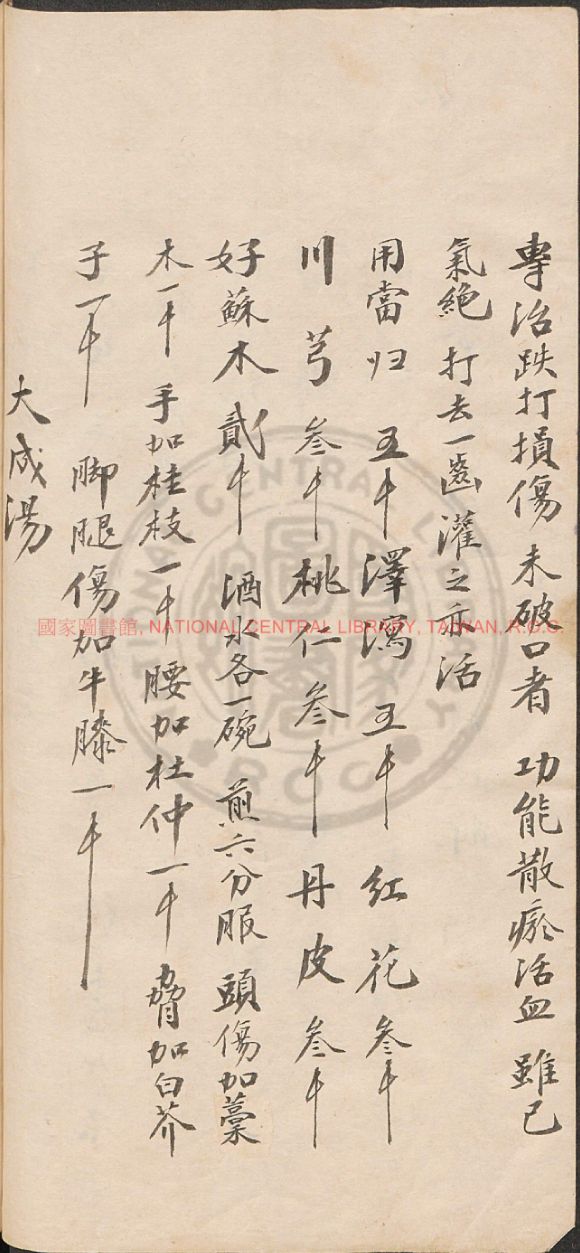 專治跌打損傷 未破口者 功能散瘀活血 雖已
氣絕 打去一齒灌之亦活
用當归 五千 澤瀉 五千 紅花 叁千
川芎 叁千 桃仁 叁千 丹皮 叁千
好蘇木 貳千 酒水各一碗 煎六分服 頭傷加藁
木一千 手加桂枝一千 腰加杜仲一千 脅加白芥
子一千 脚腿傷加牛膝一千
大成湯
國家圖書館, NATIONAL CENTRAL LIBRARY, TAIWAN, R.O.C.